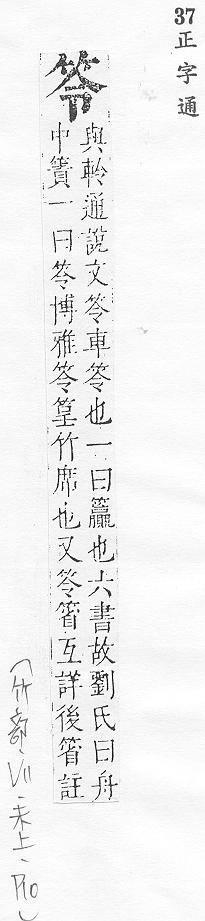 37 正字通
笭
與軨通說文笭車笭也一曰籯也六書故劉氏曰舟
中簀一曰笭博雅笭篁竹席也又笭箵互詳後箵註
(竹部、VII、未上、P10)